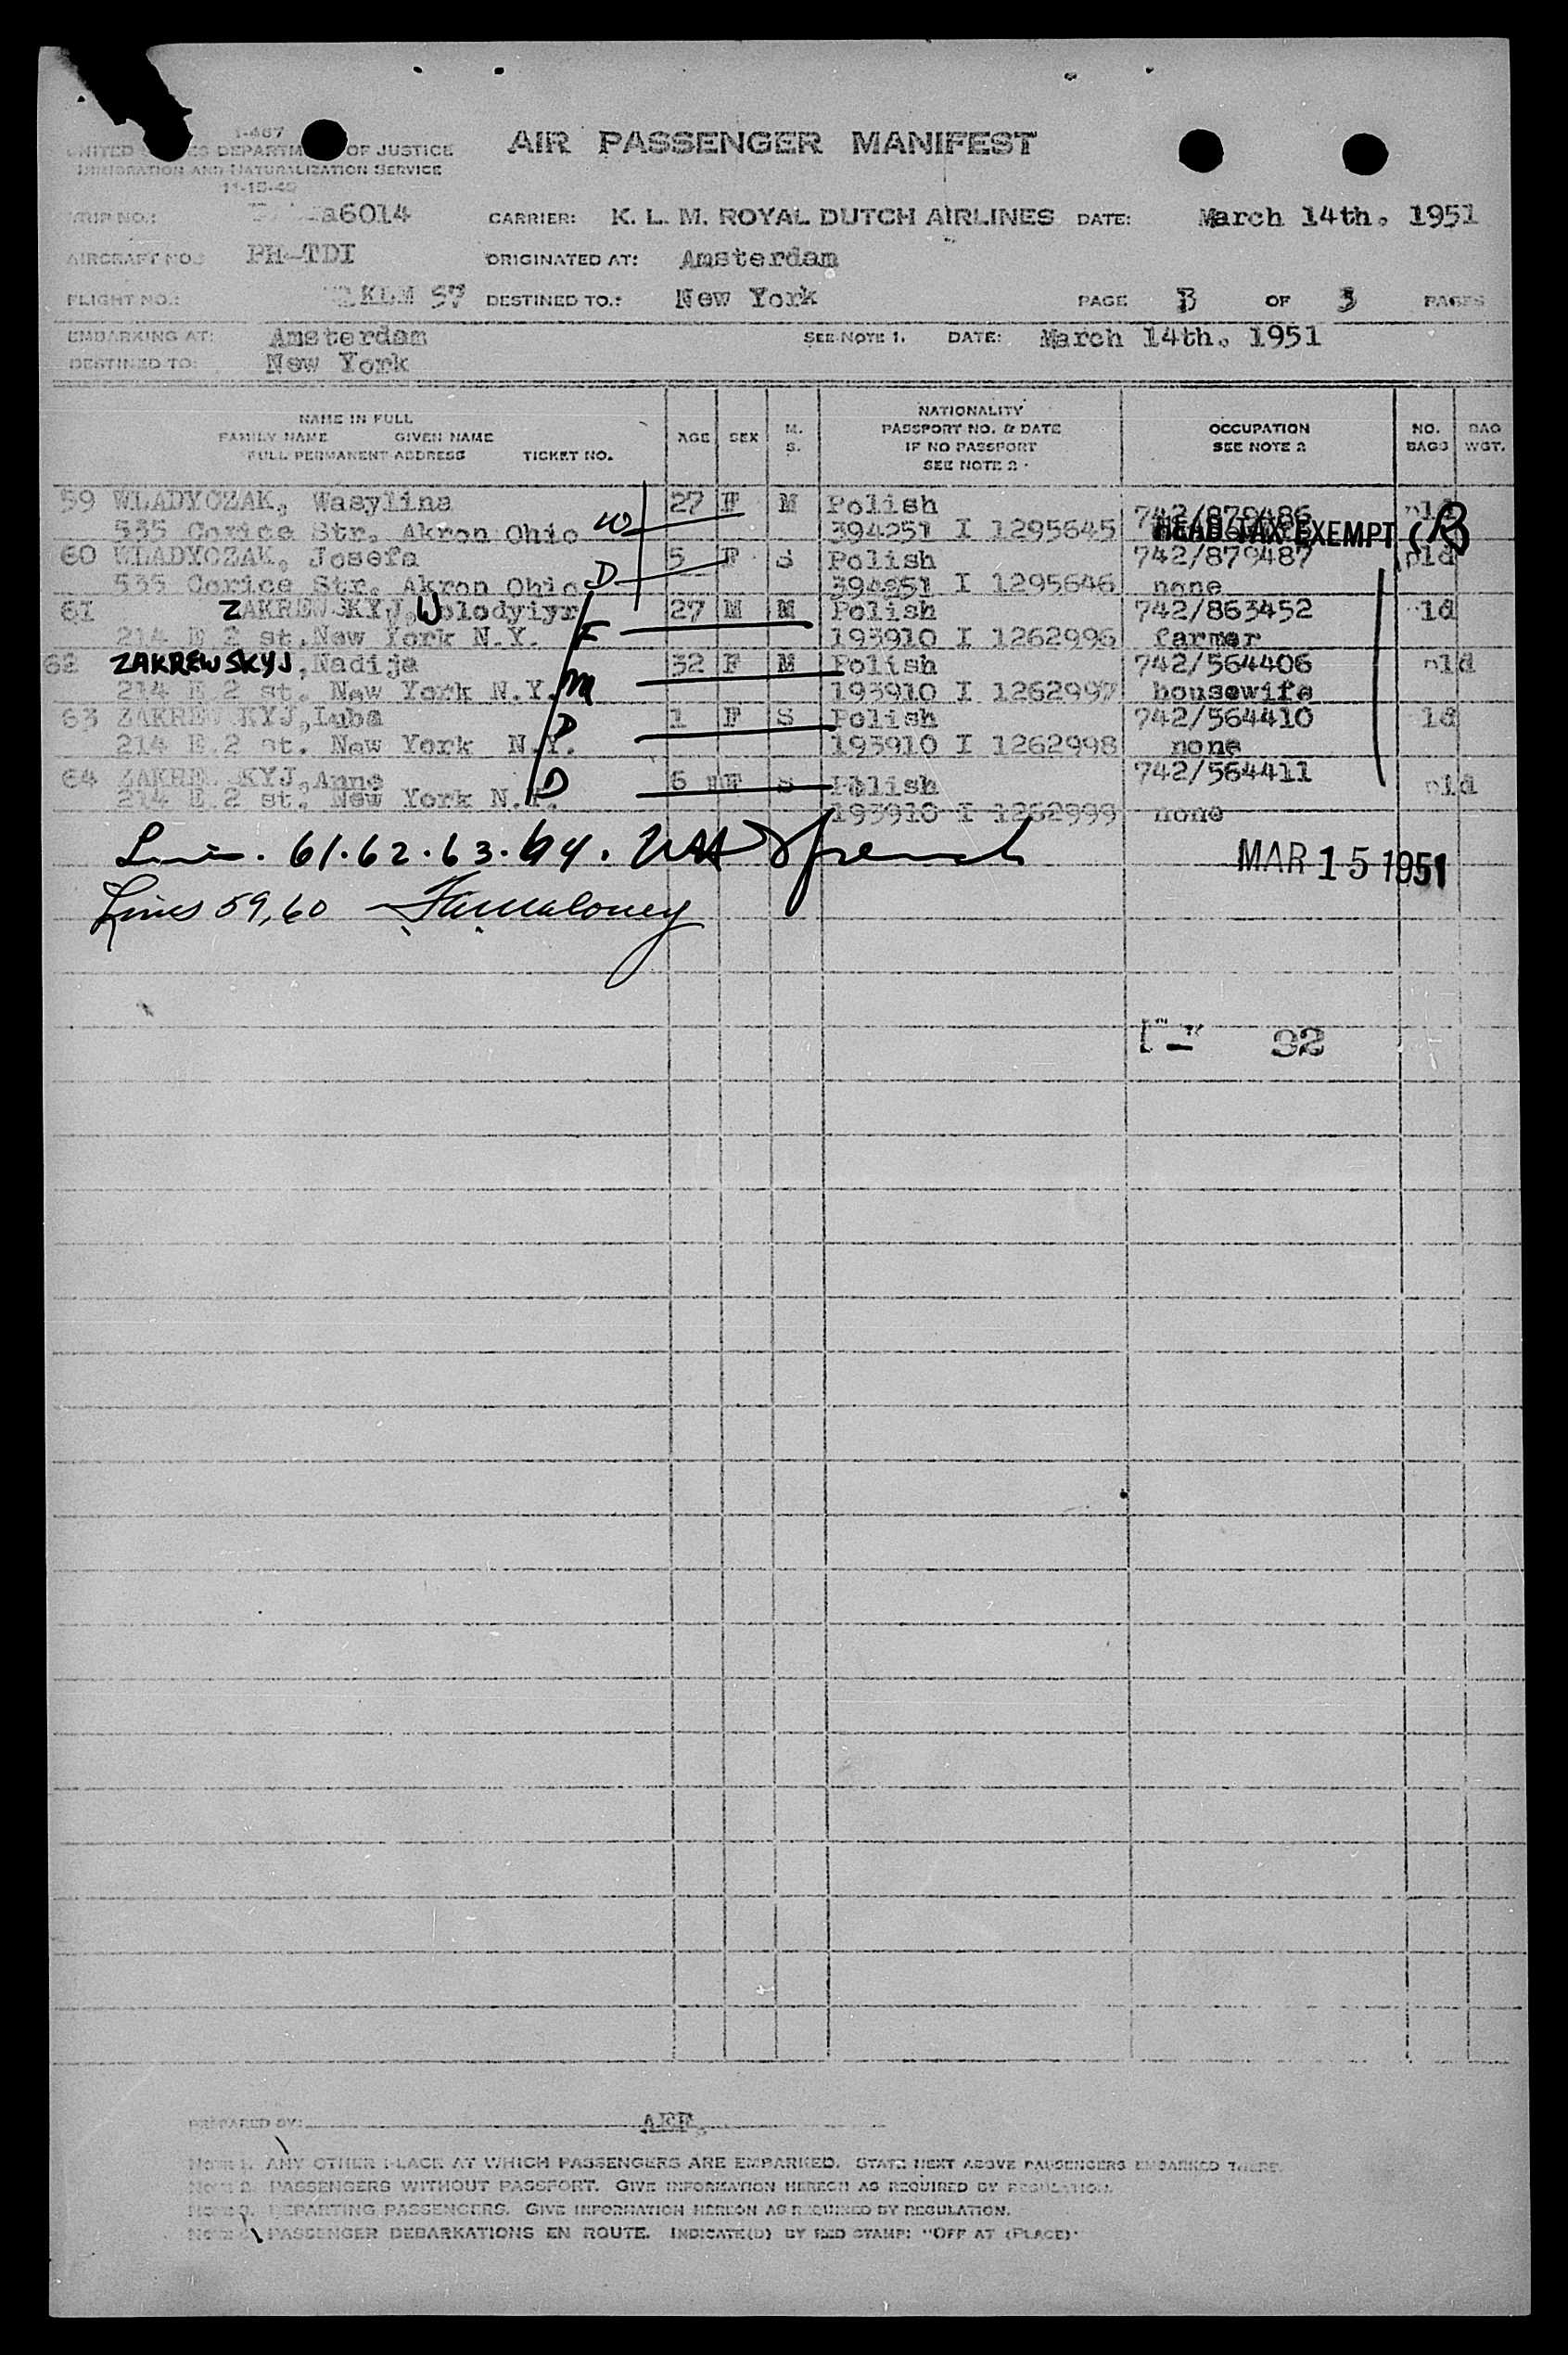 I-467
UNITED STATES DEPARTMENT OF JUSTICE
IMMIGRATION AND NATURALIZATION SERVICE
11-15-49
AIR PASSENGER MANIFEST
TRIP NO.: a6014 CARRIER: K. L. M. ROYAL DUTCH AIRLINES DATE: March 14th. 1951
AIRCRAFT NO.: PH-TDI ORIGINATED AT: Amsterdam
FLIGHT NO.: KLM 57 DESTINED TO.: New York PAGE 3 OF 3 PAGES
EMBARKING AT: Amsterdam SEE NOTE 1. DATE: March 14th. 1951
DESTINED TO: New York
NAME IN FULL
FAMILY NAME GIVEN NAME
FULL PERMANENT ADDRESS TICKET NO.
AGE SEX M. S.
NATIONALITY
PASSPORT NO. & DATE
IF NO PASSPORT
SEE NOTE 2
OCCUPATION
SEE NOTE 2
NO. BAGS
BAG WGT.
59 WLADYCZAK, Wasylina 27 F M Polish 742/879486 nld
535 Corice Str. Akron Ohio W 394251 I 1295645 HEAD TAX EXEMPT (B
60 WLADYCZAK, Josefa 5 F S Polish 742/879487 nld
535 Corice Str. Akron Ohio D 394251 I 1295646 none
61 ZAKREWSKYJ, Wolodyiyr 27 M M Polish 742/863452 ld
214 E 2 st, New York N.Y. F 193910 I 1262996 farmer
62 ZAKREWSKYJ, Nadija 32 F M Polish 742/564406 nld
214 E.2 st. New York N.Y. M 193910 I 1262997 housewife
63 ZAKREWSKYJ, Luba 1 F S Polish 742/564410 ld
214 E.2 st. New York N.Y. D 193910 I 1262998 none
64 ZAKREWSKYJ, Anne 6 F S Polish 742/564411 nld
214 E.2 st. New York N.Y. D 193910 I 1262999 none
Lines. 61.62.63.64.
MAR 15 1951
Lines 59,60
92
PREPARED BY:
NOTE 1. ANY OTHER PLACE AT WHICH PASSENGERS ARE EMBARKED. STATE NEXT ABOVE PASSENGERS EMBARKED THERE.
NOTE 2. PASSENGERS WITHOUT PASSPORT. GIVE INFORMATION HEREON AS REQUIRED BY REGULATION.
NOTE 3. DEPARTING PASSENGERS. GIVE INFORMATION HEREON AS REQUIRED BY REGULATION.
NOTE 4. PASSENGER DEBARKATIONS EN ROUTE. INDICATE(D) BY RED STAMP: "OFF AT (PLACE)"